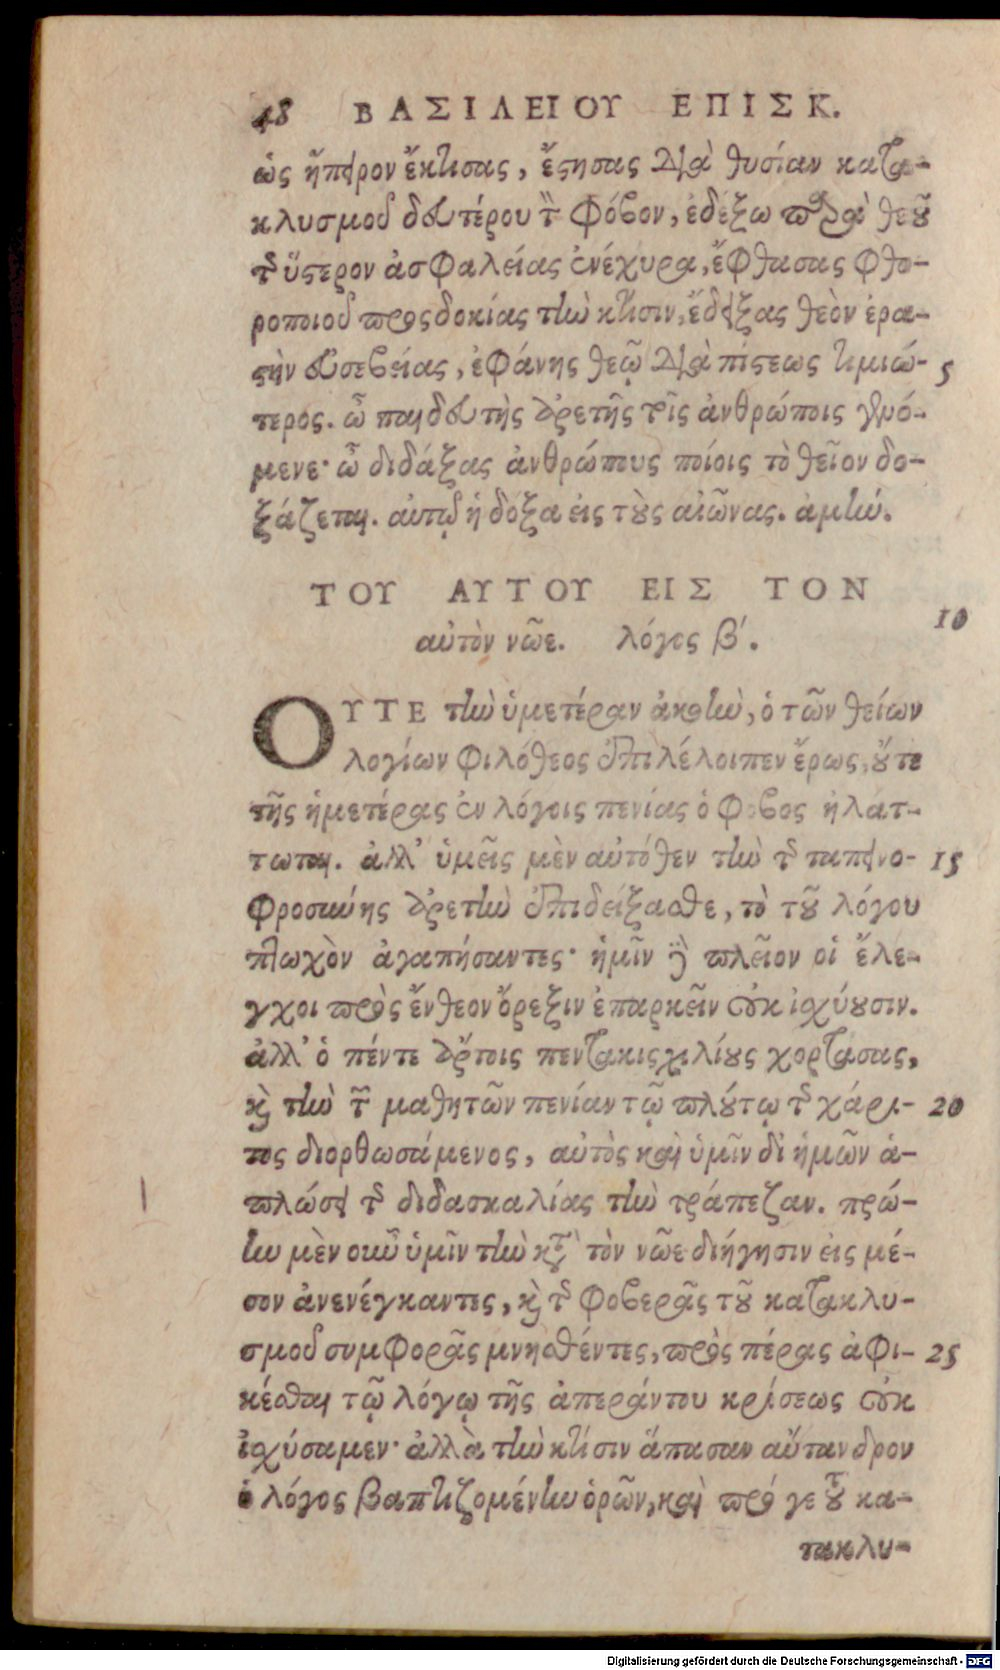 48 ΒΑΣΙΛΕΙΟΥ ΕΠΙΣΚ.
ὡς ἤπειρον ἔκτισας, ἔστησας διὰ θυσίαν κατα-
κλυσμοῦ δευτέρου τὸν φόβον, ἐδέξω παρὰ θεοῦ
τῆς ὕστερον ἀσφαλείας ἐνέχυρα, ἔφθασας φθο-
ροποιοῦ προσδοκίας τὴν κτίσιν, ἔδειξας θεὸν ἐρα-
στὴν εὐσεβείας, ἐφάνης θεῷ διὰ πίστεως τιμιώ- 5
τερος. ὦ παιδευτὴς ἀρετῆς τοῖς ἀνθρώποις γενό-
μενε· ὦ διδάξας ἀνθρώπους ποίοις τὸ θεῖον δο-
ξάζεται. αὐτῷ ἡ δόξα εἰς τοὺς αἰῶνας. ἀμήν.
ΤΟΥ ΑΥΤΟΥ ΕΙΣ ΤΟΝ
αὐτὸν νῶε. λόγος β΄. 10
ΟΥΤΕ τὴν ὑμετέραν ἀκοὴν, ὁ τῶν θείων
λογίων φιλόθεος ἐπιλέλοιπεν ἔρως, οὔτε
τῆς ἡμετέρας ἐν λόγοις πενίας ὁ φόβος ἠλάτ-
τωται. ἀλλ' ὑμεῖς μὲν αὐτόθεν τὴν τῆς ταπεινο- 15
φροσύνης ἀρετὴν ἐπιδείξασθε, τὸ τοῦ λόγου
πτωχὸν ἀγαπήσαντες· ἡμῖν δὲ πλεῖον οἱ ἔλε-
γχοι πρὸς ἔνθεον ὄρεξιν ἐπαρκεῖν οὐκ ἰσχύουσιν.
ἀλλ' ὁ πέντε ἄρτοις πεντακισχιλίους χορτάσας,
καὶ τὴν τῶν μαθητῶν πενίαν τῷ πλούτῳ τῆς χάρι- 20
τος διορθωσάμενος, αὐτὸς καὶ ὑμῖν δι' ἡμῶν ἁ-
πλώσει τῆς διδασκαλίας τὴν τράπεζαν. πρώ-
ην μὲν οὖν ὑμῖν τὴν κατὰ τὸν νῶε διήγησιν εἰς μέ-
σον ἀνενέγκαντες, καὶ τῆς φοβερᾶς τοῦ κατακλυ-
σμοῦ συμφορᾶς μνησθέντες, πρὸς πέρας ἀφι- 25
κέσθαι τῷ λόγῳ τῆς ἀπεράντου κρίσεως οὐκ
ἰσχύσαμεν· ἀλλὰ τὴν κτίσιν ἅπασαν αὔτανδρον
ὁ λόγος βαπτιζομένην ὁρῶν, καὶ πρό γε τοῦ κα-
τακλυ-
Digitalisierung gefördert durch die Deutsche Forschungsgemeinschaft - DFG